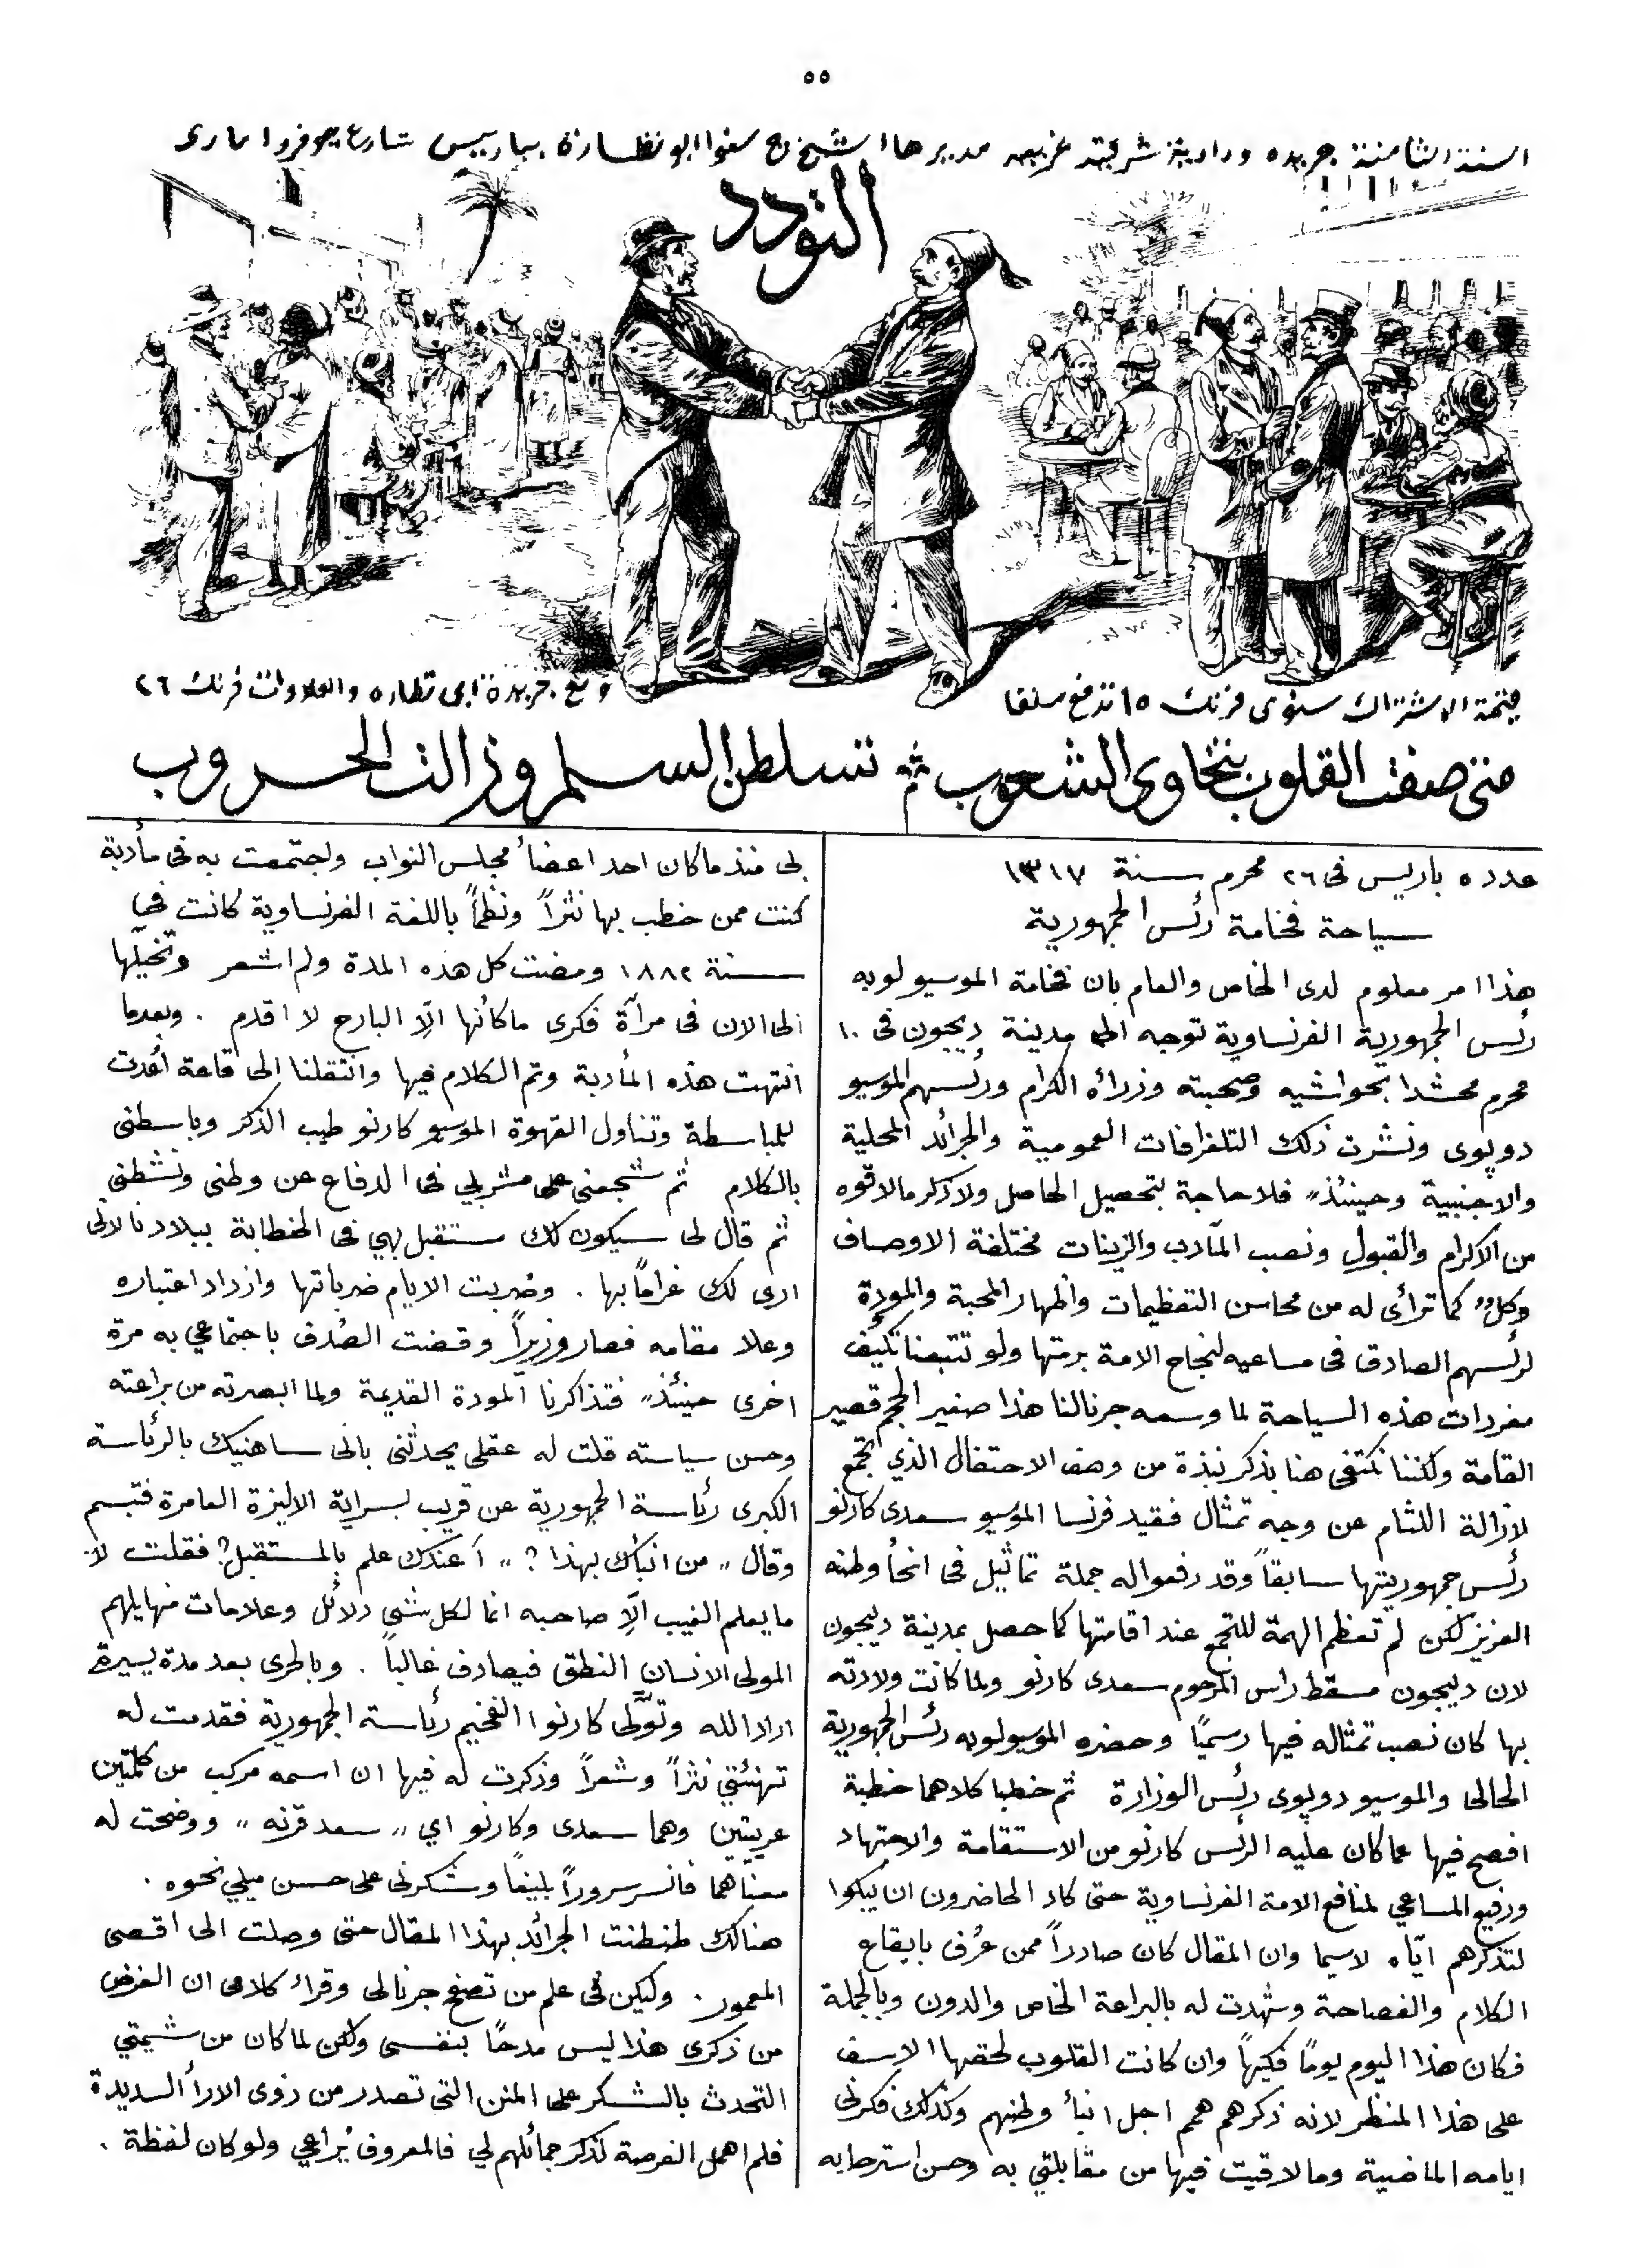 ٥٥
السنة الثامنة جريده ودادية شرقية غربيه مديرها الشيخ ج سنوا ابو نظارة بباريس شارع جوفروا مارى
التودد
قيمة الاشتراك سنوى فرنك ١٥ تدفع سلفا
ومع جريدة ابى نظاره والعلاوات فرنك ٢٦
متى صفت القلوب بتخاوى الشعوب تسلطن السلم وزالت الحروب
عدد ٥ باريس فى ٢٦ محرم سنة ١٣١٧
سياحة فخامة رئس الجمهورية
هذا امر معلوم لدى الخاص والعام بان فخامة الموسيو لوبه
رئس الجمهورية الفرنساوية توجه الى مدينة ديجون فى ١٠
محرم محشدا بحواشيه وصحبته وزرائه الكرام ورئسهم الموسيو
دوپوى ونشرت ذلك التلغرافات العمومية والجرائد المحلية
والاجنبية وحينئذ فلا حاجة بتحصيل الحاصل ولا ذكر ما لاقوه
من الاكرام والقبول ونصب المآدب والزينات مختلفة الاوصاف
وكل كما ترائى له من محاسن التعظيمات واظهار المحبة والمودة
لرئسهم الصادق فى مساعيه لنجاح الامة برمتها ولو تتبعنا تكيف
مفردات هذه السياحة لما وسعه جرنالنا هذا صغير الحجم قصير
القامة ولكننا نكتفى هنا بذكر نبذة من وصف الاحتفال الذي تجمع
لازالة اللثام عن وجه تمثال فقيد فرنسا الموسيو سعدى كارنو
رئس جمهوريتها سابقاً وقد رفعوا له جملة تماثيل فى انحأ وطنه
العزيز لكن لم تعظم الهمة للتجمع عند اقامتها كما حصل بمدينة ديجون
لان ديجون مسقط راس المرحوم سعدى كارنو ولما كانت ولادته
بها كان نصب تمثاله فيها رسميًا وحضره الموسيو لوبه رئس الجمهورية
الحالى والموسيو دوپوى رئس الوزارة ثم خطبا كلاهما خطبة
افصح فيها عما كان عليه الرئس كارنو من الاستقامة والاجتهاد
ورفيع المساعي لمنافع الامة الفرنساوية حتى كاد الحاضرون ان يبكوا
لتذكرهم ايّاه لاسيما وان المقال كان صادراً ممن عُرف بايقاع
الكلام والفصاحة وشهدت له بالبراعة الخاص والدون وبالجملة
فكان هذا اليوم يومًا فكيهاً وان كانت القلوب لحقها الاسف
على هذا المنظر لانه ذكرهم همم اجل انبأ وطنهم وكذلك فكرنى
ايامه الماضية وما لاقيت فيها من مقابلتي به وحسن استرحابه
لى منذ ما كان احد اعضأ مجلس النواب واجتمعت به فى مأدبة
كنت ممن خطب بها نثراً ونظماً باللغة الفرنساوية كانت في
سنة ١٨٨٢ ومضت كل هذه المدة ولم اشعر وتخيلها
الى الان فى مرآة فكرى ما كأنها الّا البارح لا اقدم . وبعدما
انتهت هذه المأدبة وتم الكلام فيها وانتقلنا الى قاعة أعدت
للمباسطة وتناول القهوة الموسيو كارنو طيب الذكر وباسطنى
بالكلام ثم شجعنى على مشربي فى الدفاع عن وطنى ونشطني
ثم قال لى سيكون لك مستقبل بهي فى الخطابة ببلادنا لانى
ارى لك غرامًا بها . وضربت الايام ضرباتها وازداد اعتباره
وعلا مقامه فصار وزيراً وقضت الصُدف باجتماعي به مرة
اخرى حينئذ فتذاكرنا المودة القديمة ولما ابصرته من براعته
وحسن سياسته قلت له عقلى يحدثنى بانى ساهنيك بالرئاسة
الكبرى رئاسة الجمهورية عن قريب بسراية الاليزة العامرة فتبسم
وقال „ من انبأك بهذا ? „ أ عندك علم بالمستقبل ? فقلت لا.
ما يعلم الغيب الّا صاحبه انما لكل شي دلائل وعلامات منها يلهم
المولى الانسان النطق فيصادف غالباً . وبالحرى بعد مدة يسيرة
اراد الله وتولّى كارنو الفخيم رئاسة الجمهورية فقدمت له
تهنئتي نثراً وشعراً وذكرت له فيها ان اسمه مركب من كلمتين
عربيتين وهما سعدى وكارنو اي „ سعد قرنه „ ووضحت له
معناهما فانسر سروراً بليغاً وشكرنى على حسن ميلي نحوه .
هنالك طنطنت الجرائد بهذا المقال حتى وصلت الى اقصى
المعمور . وليكن فى علم من تصفح جرنالى وقراء كلامى ان الغرض
من ذكرى هذا ليس مدحًا بنفسى ولكن لما كان من شيمتي
التحدث بالشكر على المنن التى تصدر من ذوى الارأ السديدة
فلم اهمل الفرصة لذكر جمائلهم لي فالمعروف يُراعي ولو كان لفظة .